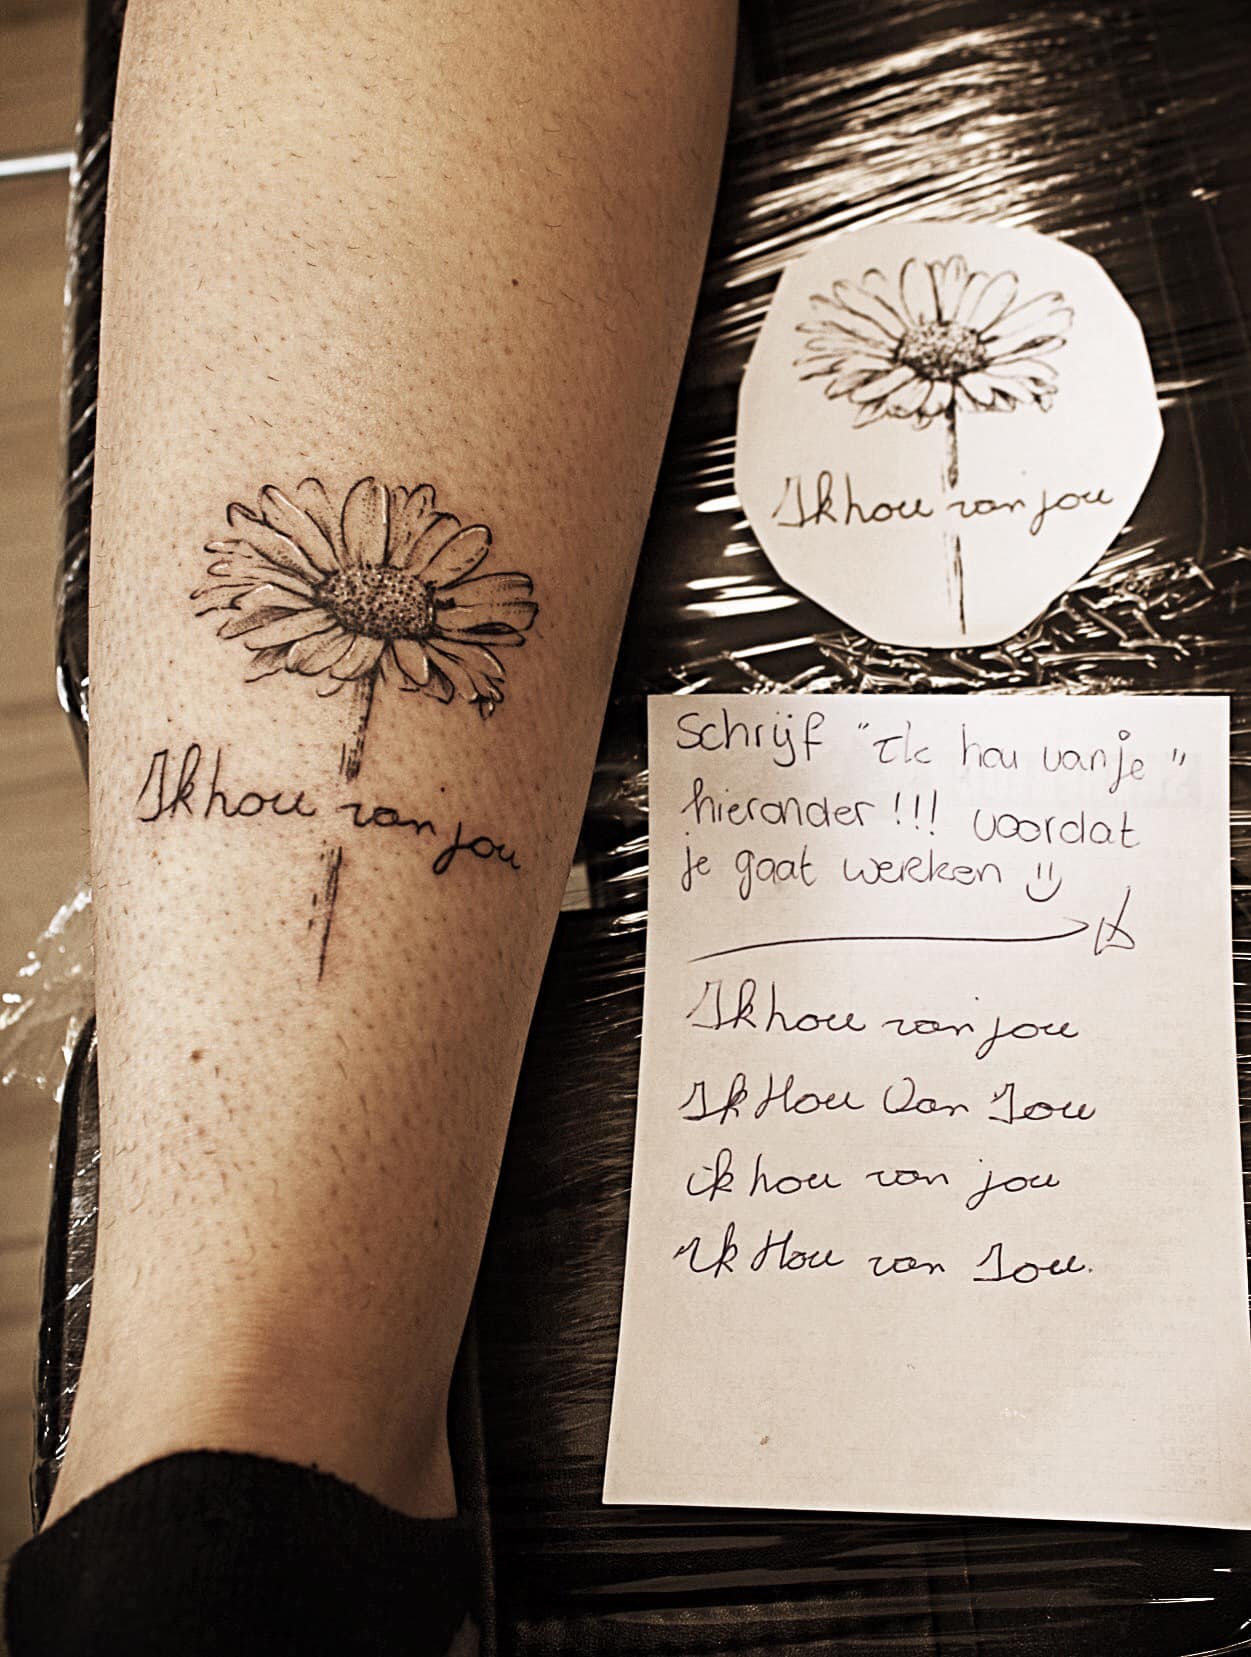 Ik hou van jou
Ik hou van jou
Schrijf "Ik hou van je"
hieronder!!! voordat
je gaat werken
Ik hou van jou
Ik Hou Van Jou
ik hou van jou
Ik Hou van Jou.